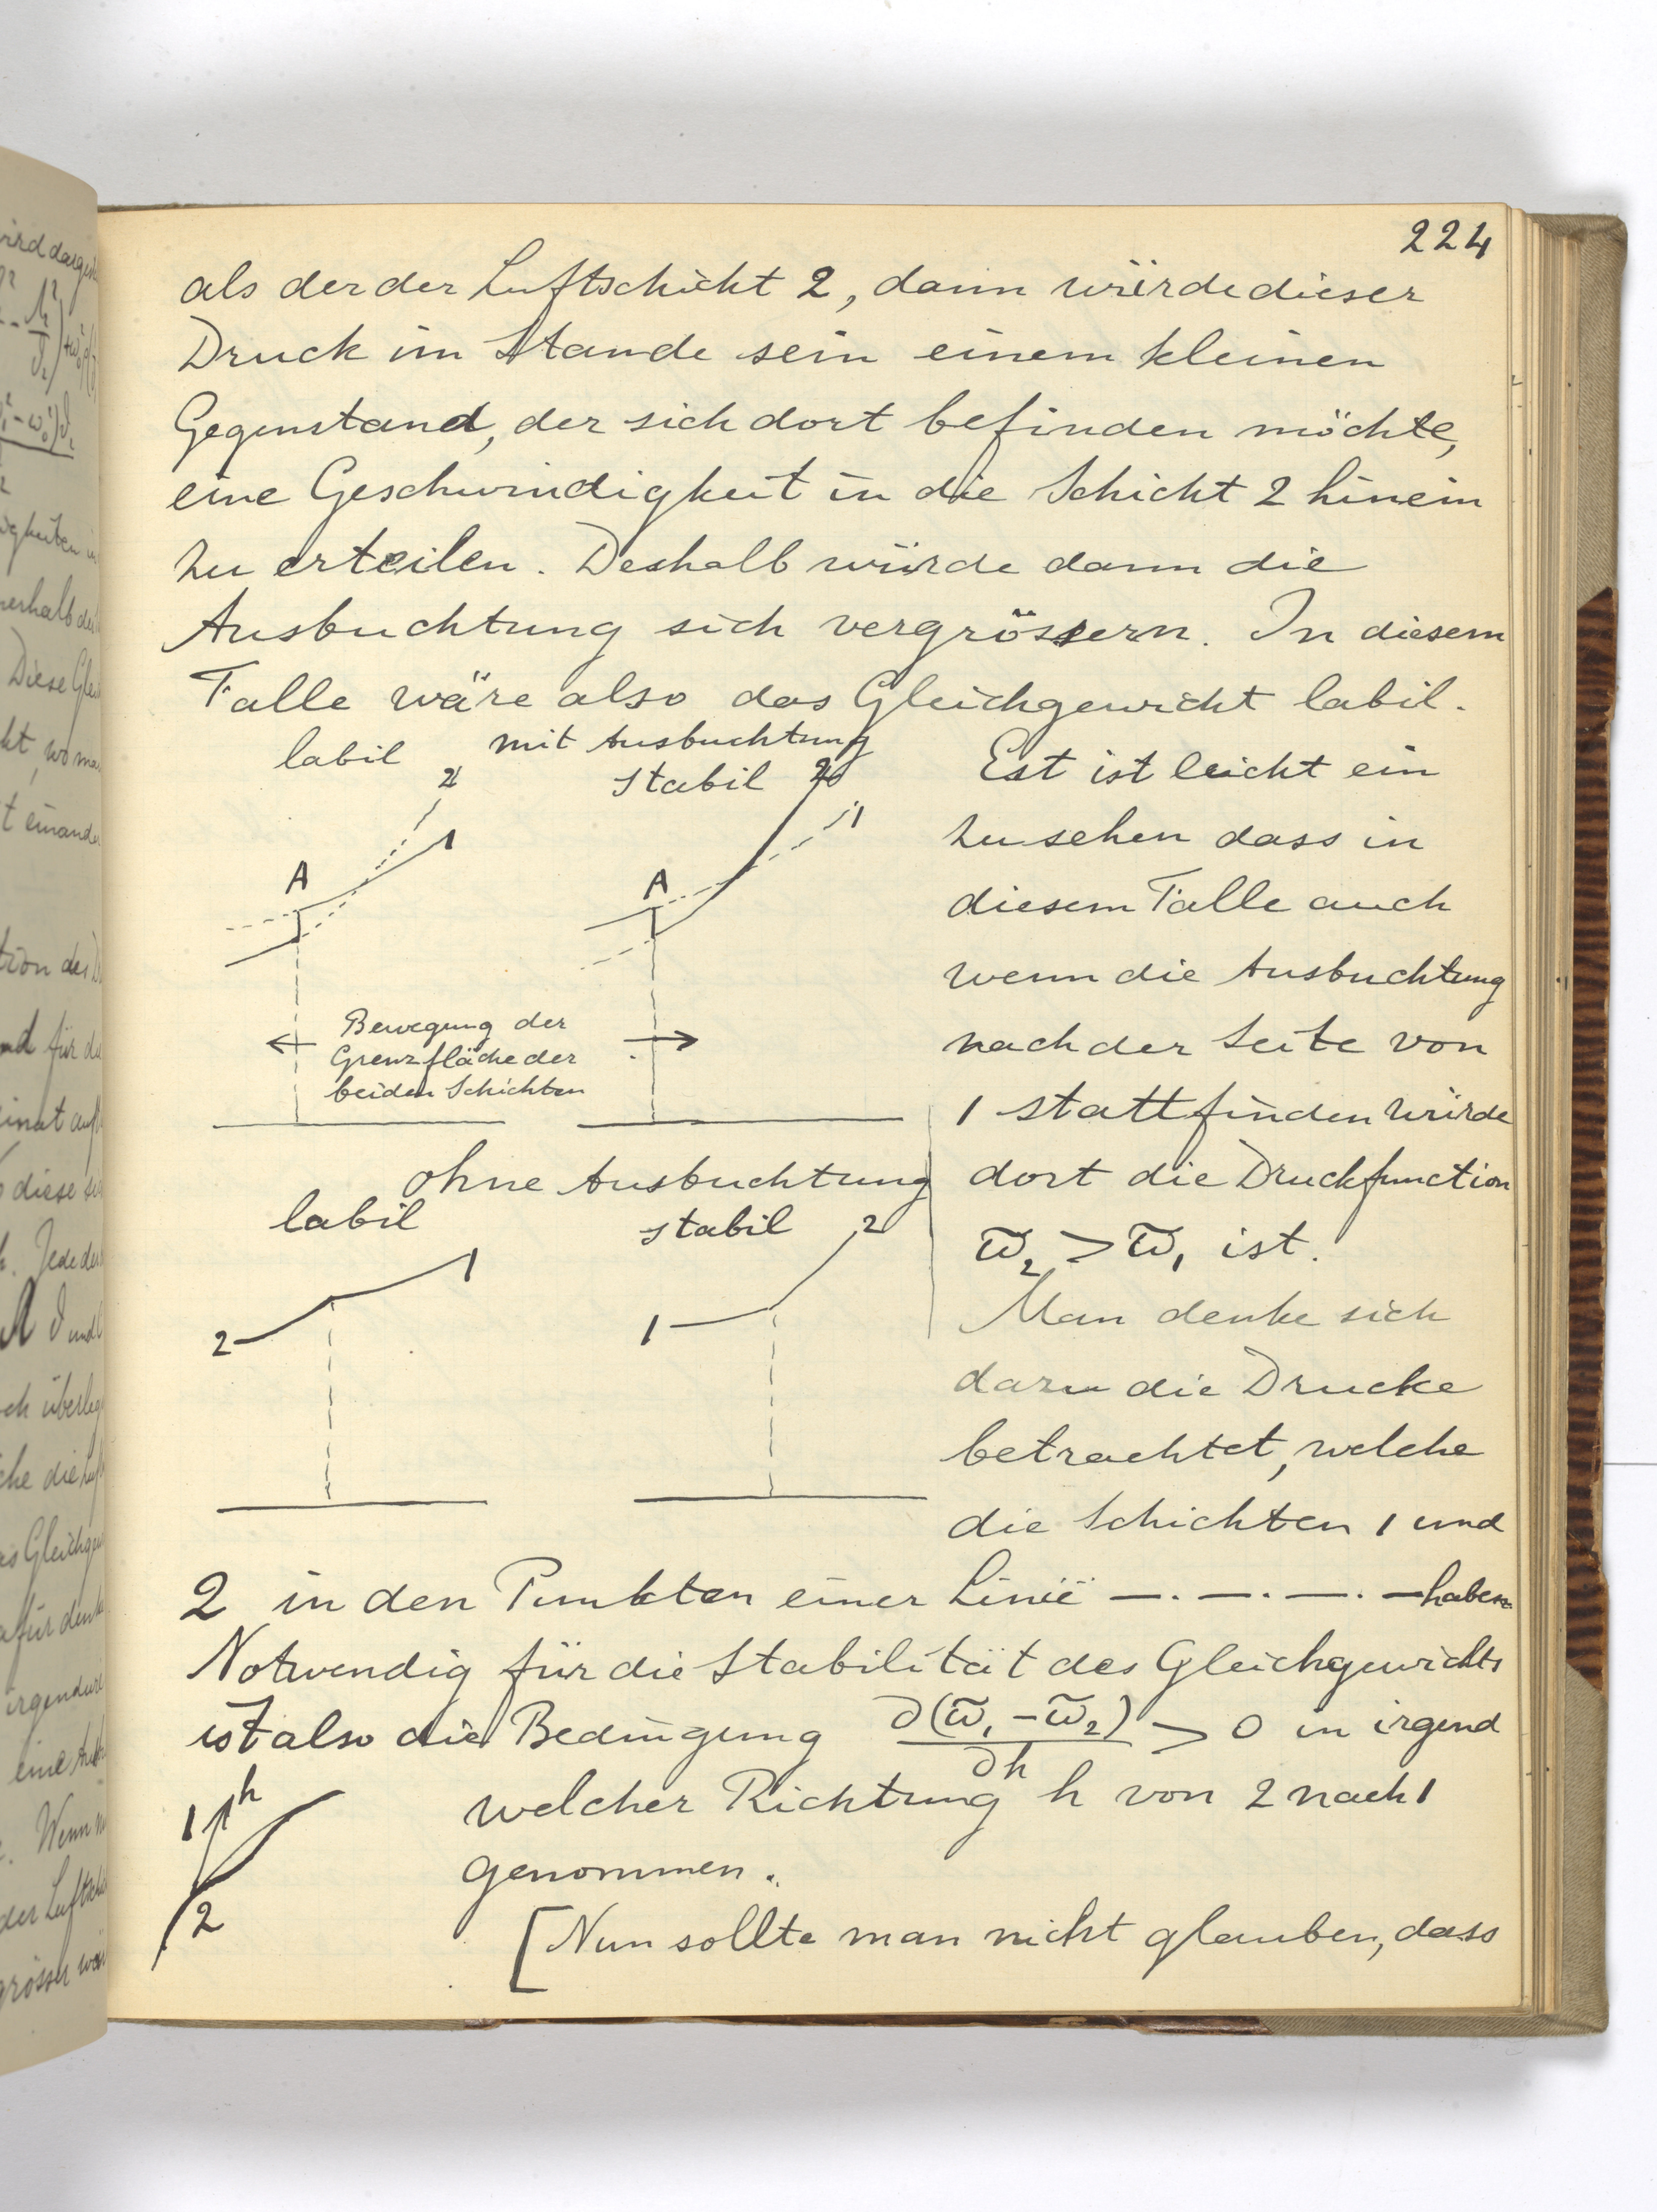 224
als der der Luftschicht 2, dann würde dieser
Druck im Stande sein einem kleinen
Gegenstand, der sich dort befinden möchte,
eine Geschwindigkeit in die Schicht 2 hinein
zu erteilen. Deshalb würde dann die
Ausbuchtung sich vergrössern. In diesem
Falle wäre also das Gleichgewicht labil.
mit Ausbuchtung
labil
stabil
2
1
A
2
1
A
Bewegung der
Grenzfläche der
beiden Schichten
ohne Ausbuchtung
labil
stabil
2
1
1
2
Est ist leicht ein
zu sehen dass in
diesem Falle auch
wenn die Ausbuchtung
nach der Seite von
1 stattfinden würde
dort die Druckfunction
ϖ₂ > ϖ₁ ist.
Man denke sich
dazu die Drucke
betrachtet, welche
die Schichten 1 und
2 in den Punkten einer Linie —·—·—·— haben.
Notwendig für die Stabilität des Gleichgewichts
ist also die Bedingung ∂(ϖ₁ − ϖ₂)/∂h > 0 in irgend
welcher Richtung h von 2 nach 1
genommen.
1 h
2
[Nun sollte man nicht glauben, dass